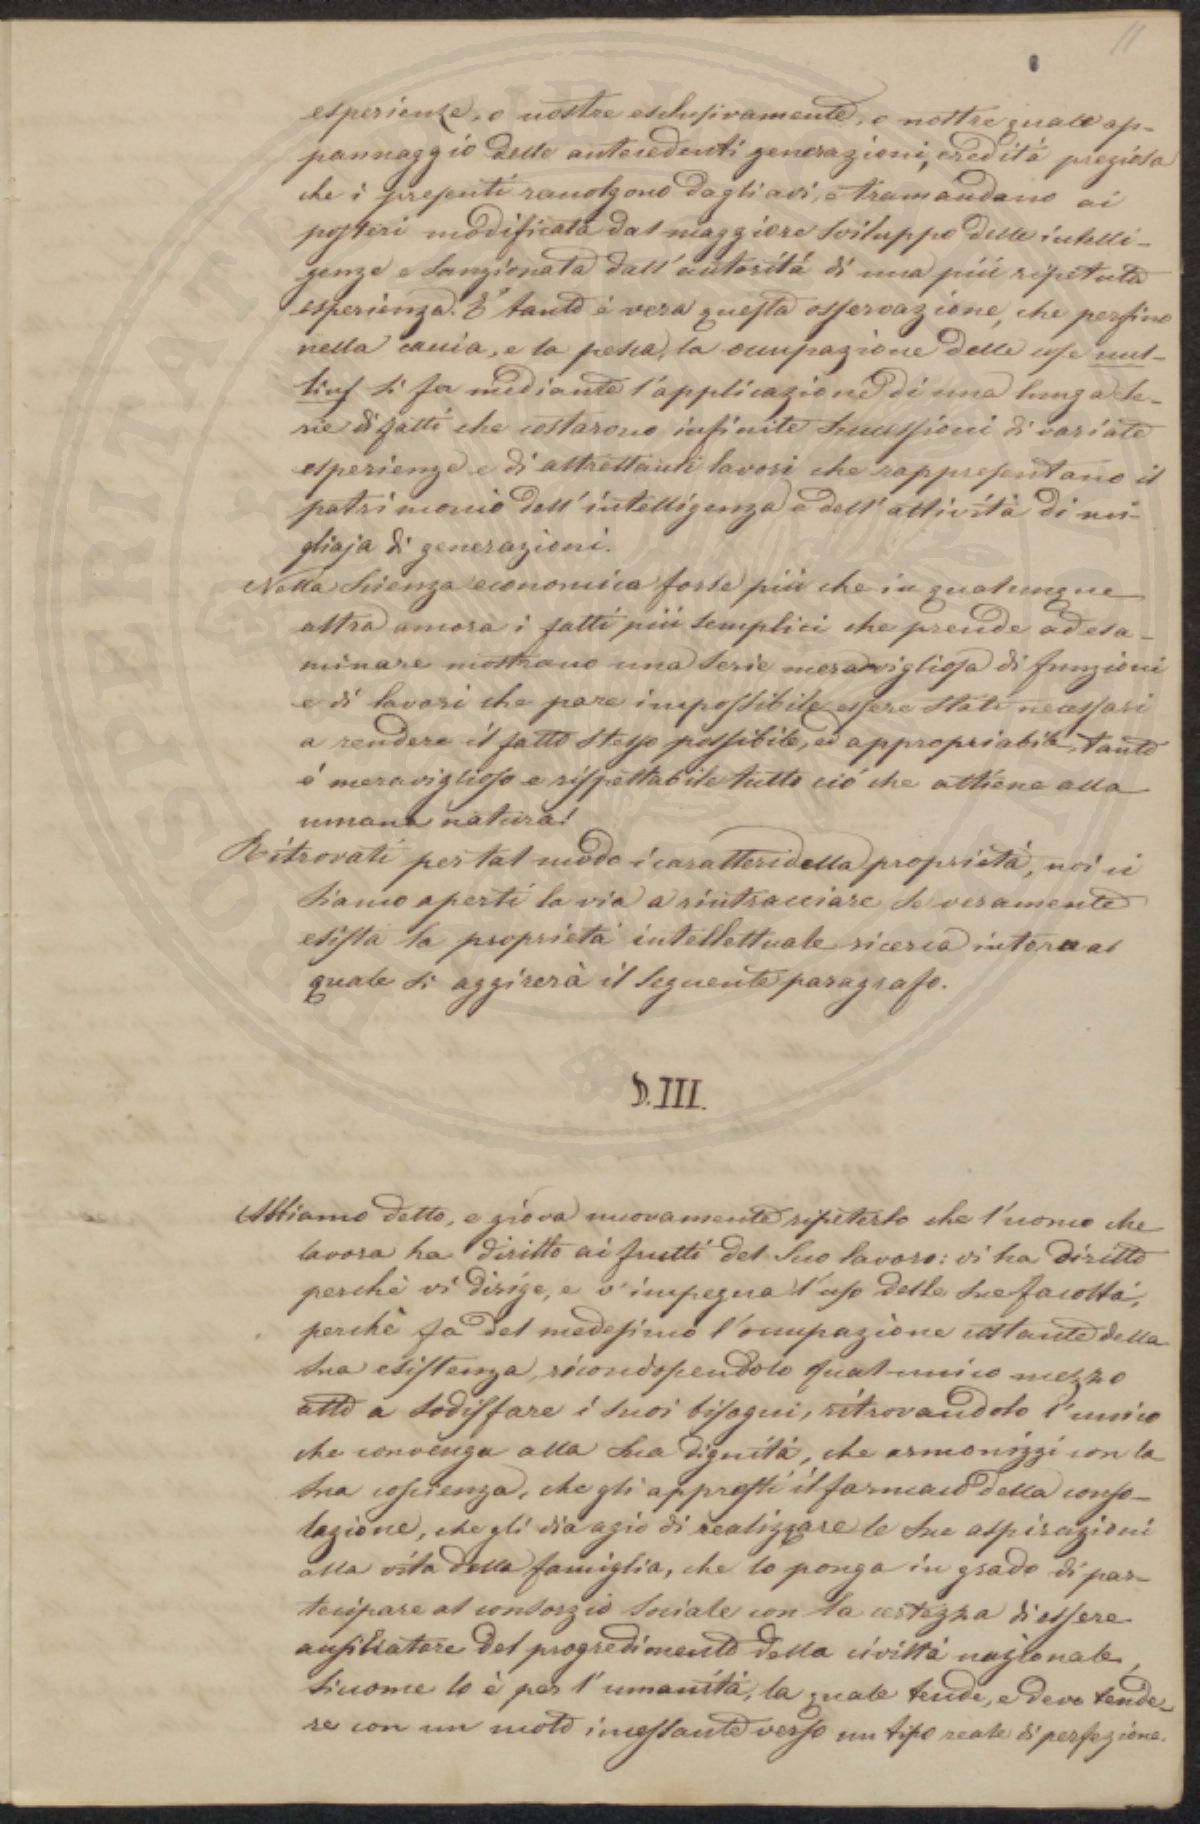 11
esperienze, o nostre esclusivamente, o nostre quale ap-
pannaggio delle antecedenti generazioni, eredità preziosa
che i presenti raccolgono dagli avi, e tramandano ai
posteri modificata dal maggiore sviluppo delle intelli-
genze e sanzionata dall'autorità di una più ripetuta
esperienza. E tanto è vera questa osservazione, che perfino
nella caccia, e la pesca, la occupazione delle cose nul-
lius si fa mediante l'applicazione di una lunga se-
rie di fatti che costarono infinite successioni di variate
esperienze e di altrettanti lavori che rappresentano il
patrimonio dell'intelligenza e dell'attività di mi-
gliaja di generazioni.
Nella scienza economica forse più che in qualunque
altra ancora i fatti più semplici che prende ad esa-
minare mostrano una serie meravigliosa di funzioni
e di lavori che pare impossibile essere stati necessari
a rendere il fatto stesso possibile, ed appropriabile, tanto
è meraviglioso e rispettabile tutto ciò che attiene alla
umana natura!
Ritrovati per tal modo i caratteri della proprietà, noi ci
siamo aperti la via a rintracciare se veramente
esista la proprietà intellettuale ricerca intorno al
quale si aggirerà il seguente paragrafo.
§. III.
Abbiamo detto, e giova nuovamente ripeterlo che l'uomo che
lavora ha diritto ai frutti del suo lavoro: vi ha diritto
perchè vi dirige, e v'impegna l'uso delle sue facoltà,
perchè fa del medesimo l'occupazione costante della
sua esistenza, riconoscendolo qual unico mezzo
atto a sodisfare i suoi bisogni, ritrovandolo l'unico
che convenga alla sua dignità, che armonizzi con la
sua coscienza, che gli appresti il farmaco della conso-
lazione, che gli dia agio di realizzare le sue aspirazioni
alla vita della famiglia, che lo ponga in grado di par-
tecipare al consorzio sociale con la certezza di essere
ausiliatore del progredimento della civiltà nazionale,
siccome lo è per l'umanità, la quale tende, e deve tende-
re con un moto incessante verso un tipo reale di perfezione.
PROSPERITATI